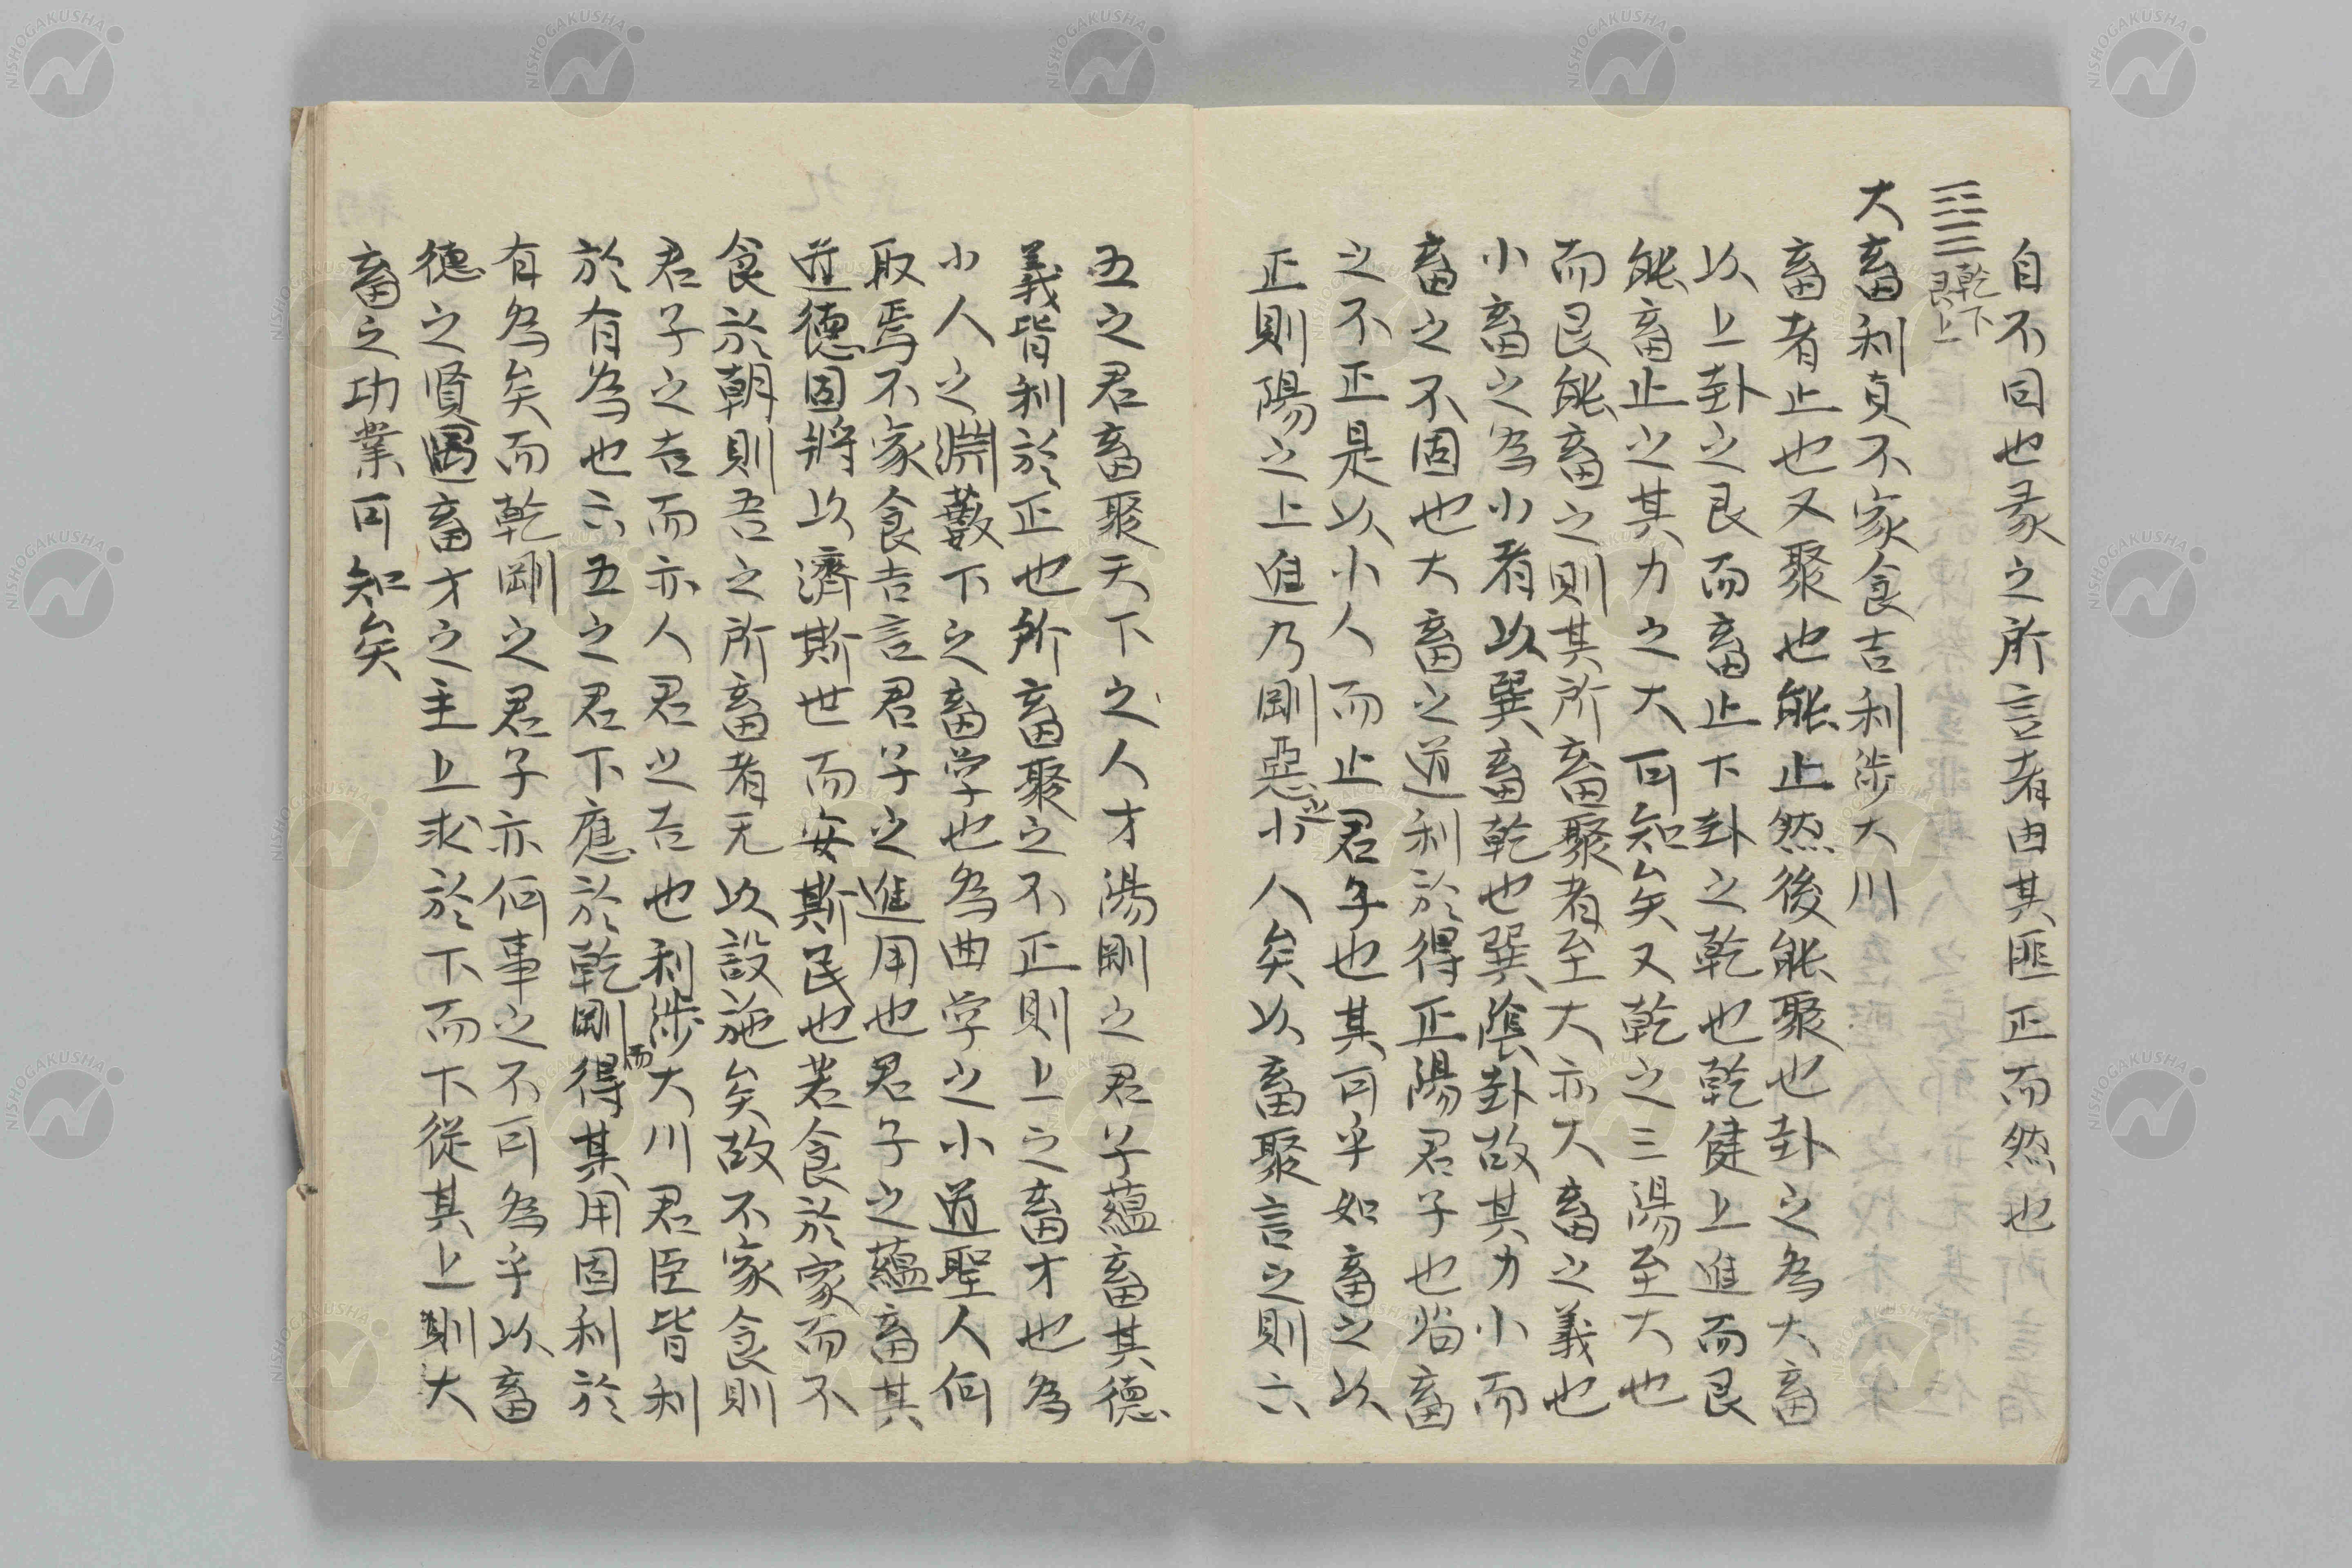 自不同也彖之所言者由其匪正而然也
䷙乾下艮上
大畜利貞不家食吉利渉大川
畜者止也又聚也能止然後能聚也卦之為大畜
以上卦之艮而畜止下卦之乾也乾健上進而艮
能畜止之其力之大可知矣又乾之三陽至大也
而艮能畜之則其所畜聚者至大亦大畜之義也
小畜之為小者以巽畜乾也巽陰卦故其力小而
畜之不固也大畜之道利於得正陽君子也畜
之不正是以小人而止君子也其可乎如畜之以
正則陽之上進乃剛惡之小人矣以畜聚言之則六
五之君畜聚天下之人才陽剛之君子蘊畜其德
義皆利於正也所畜聚之不正則上之畜才也為
小人之淵藪下之畜学也為曲学之小道聖人何
取焉不家食吉言君子之進用也君子之蘊畜其
道德固將以濟斯世而安斯民也若食於家而不
食於朝則吾之所畜者无以設施矣故不家食則
君子之吉而亦人君之吉也利渉大川君臣皆利
於有為也六五之君下應於乾剛而得其用固利於
有為矣而乾剛之君子亦何事之不可為乎以畜
德之賢遇畜才之主上求於下而下從其上則大
畜之功業可知矣
NISHOGAKUSHA